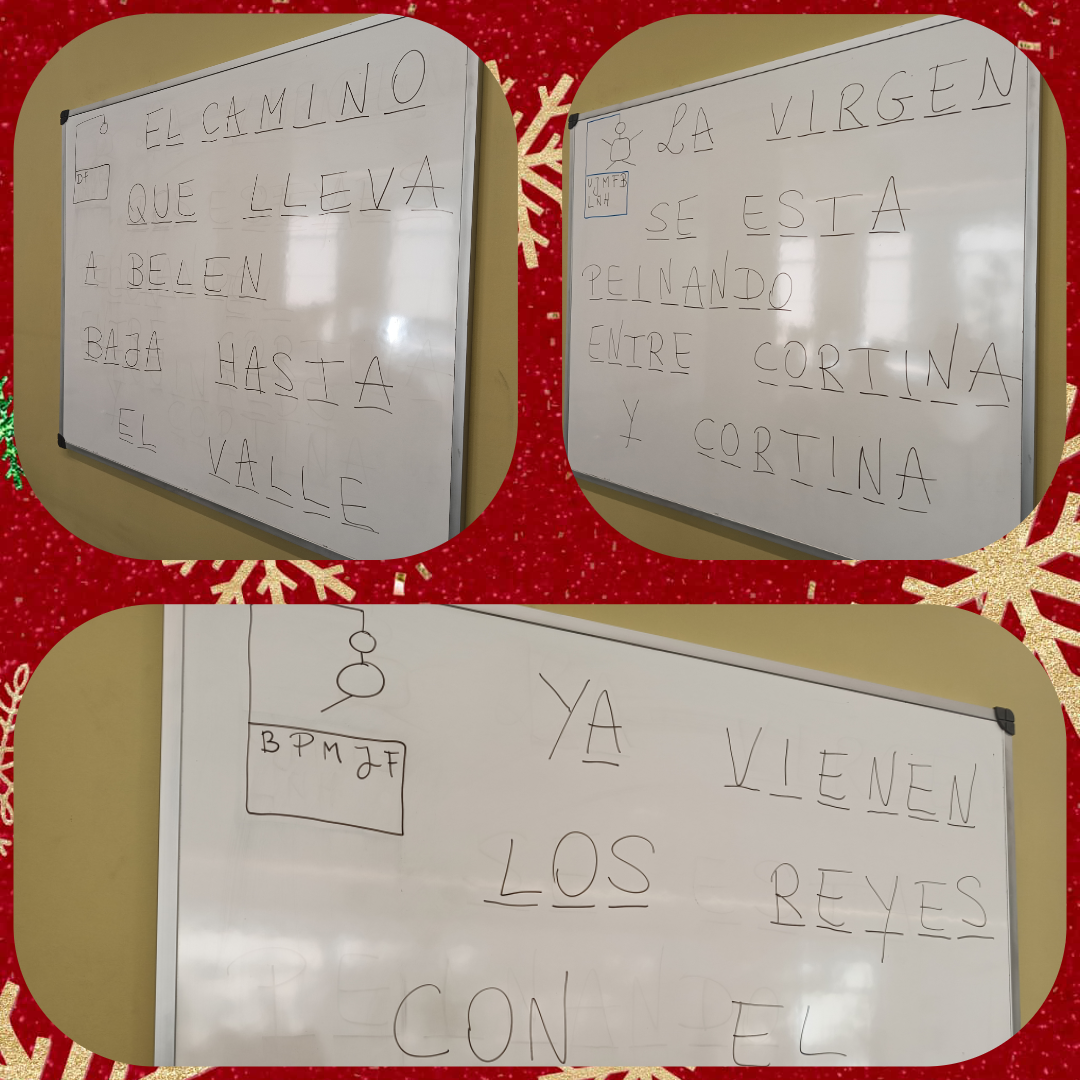 EL CAMINO
DF
QUE LLEVA
A BELEN
BAJA HASTA
EL VALLE
LA VIRGEN
VJMFB
LNH
SE ESTA
PEINANDO
ENTRE CORTINA
Y CORTINA
YA VIENEN
BPMJF
LOS REYES
CON EL